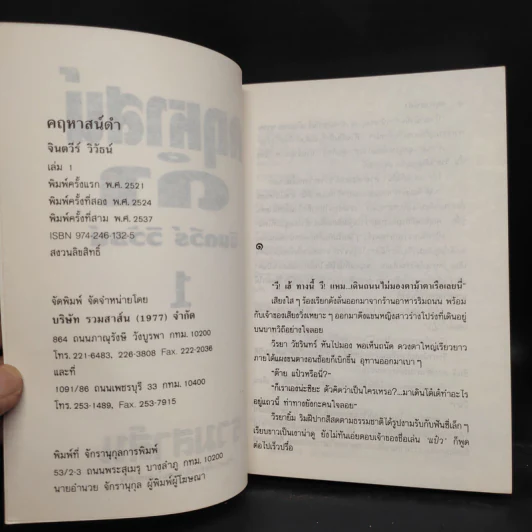 คฤหาสน์ดำ
จินตวีร์ วิวัธน์
เล่ม 1
พิมพ์ครั้งแรก พ.ศ. 2521
พิมพ์ครั้งที่สอง พ.ศ. 2524
พิมพ์ครั้งที่สาม พ.ศ. 2537
ISBN 974-246-132-5
สงวนลิขสิทธิ์
จัดพิมพ์ จัดจำหน่ายโดย
บริษัท รวมสาส์น (1977) จำกัด
864 ถนนภาณุรังษี วังบูรพา กทม. 10200
โทร. 221-6483, 226-3808 Fax. 222-2036
และที่
1091/86 ถนนเพชรบุรี 33 กทม. 10400
โทร. 253-1489, Fax. 253-7915
พิมพ์ที่ จักรานุกูลการพิมพ์
53/2-3 ถนนพระสุเมรุ บางลำภู กทม. 10200
นายอำนวย จักรานุกูล ผู้พิมพ์ผู้โฆษณา
๑
“วี! เฮ้ ทางนี้ วี! แหม...เดินถนนไม่มองตาม้าตาเรือเลยนี่”
เสียงใส ๆ ร้องเรียกดังลั่นออกมาจากร้านอาหารริมถนน พร้อม
กับเจ้าของเสียงวิ่งเหยาะ ๆ ออกมาดึงแขนหญิงสาวร่างโปร่งที่เดินอยู่
บนบาทวิถีอย่างใจลอย
วีรยา วัชรินทร์ หันไปมอง พอเห็นถนัด ดวงตาใหญ่เรียวยาว
ภายใต้แผงขนตางอนช้อยก็เบิกขึ้น อุทานออกมาเบา ๆ
“ต๊าย แป๋วหรือนี่?”
“ก็เราเองน่ะซิยะ ตัวคิดว่าเป็นใครเหรอ?...มาเดินโต๋เต๋ทำอะไร
อยู่แถวนี้ ท่าทางยังกะคนใจลอย”
วีรยายิ้ม ริมฝีปากสีสดตามธรรมชาติได้รูปงามรับกับฟันซี่เล็ก ๆ
เรียบขาวเป็นเงาน่าดู ยังไม่ทันเอ่ยตอบเจ้าของชื่อเล่น ‘แป๋ว’ ก็พูด
ต่อไปเร็วปรื๋อ